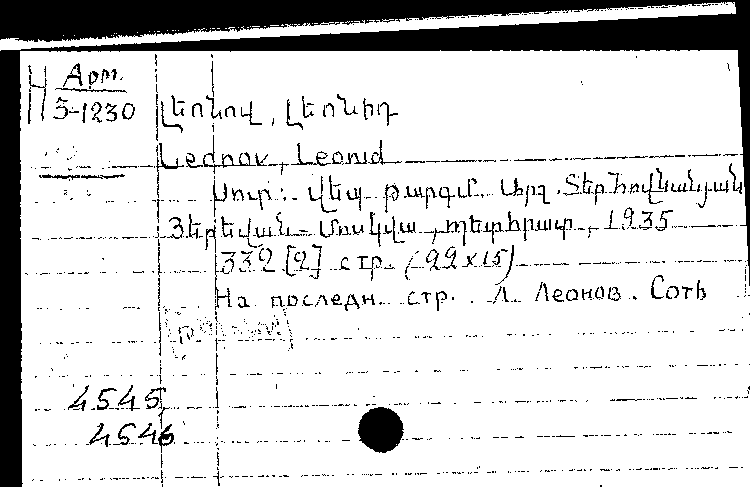 Н Арм.
3-1230
Լեոնով, Լեոնիդ
Leonov, Leonid
Սոտ: Վեպ թարգմ. Արշ. Տեր Հովնանյան
Յերեվան - Մոսկվա, պետհրատ, 1935
332 [2] стр. (22x15)
На последн. стр. Л. Леонов. Соть
4545,
4546